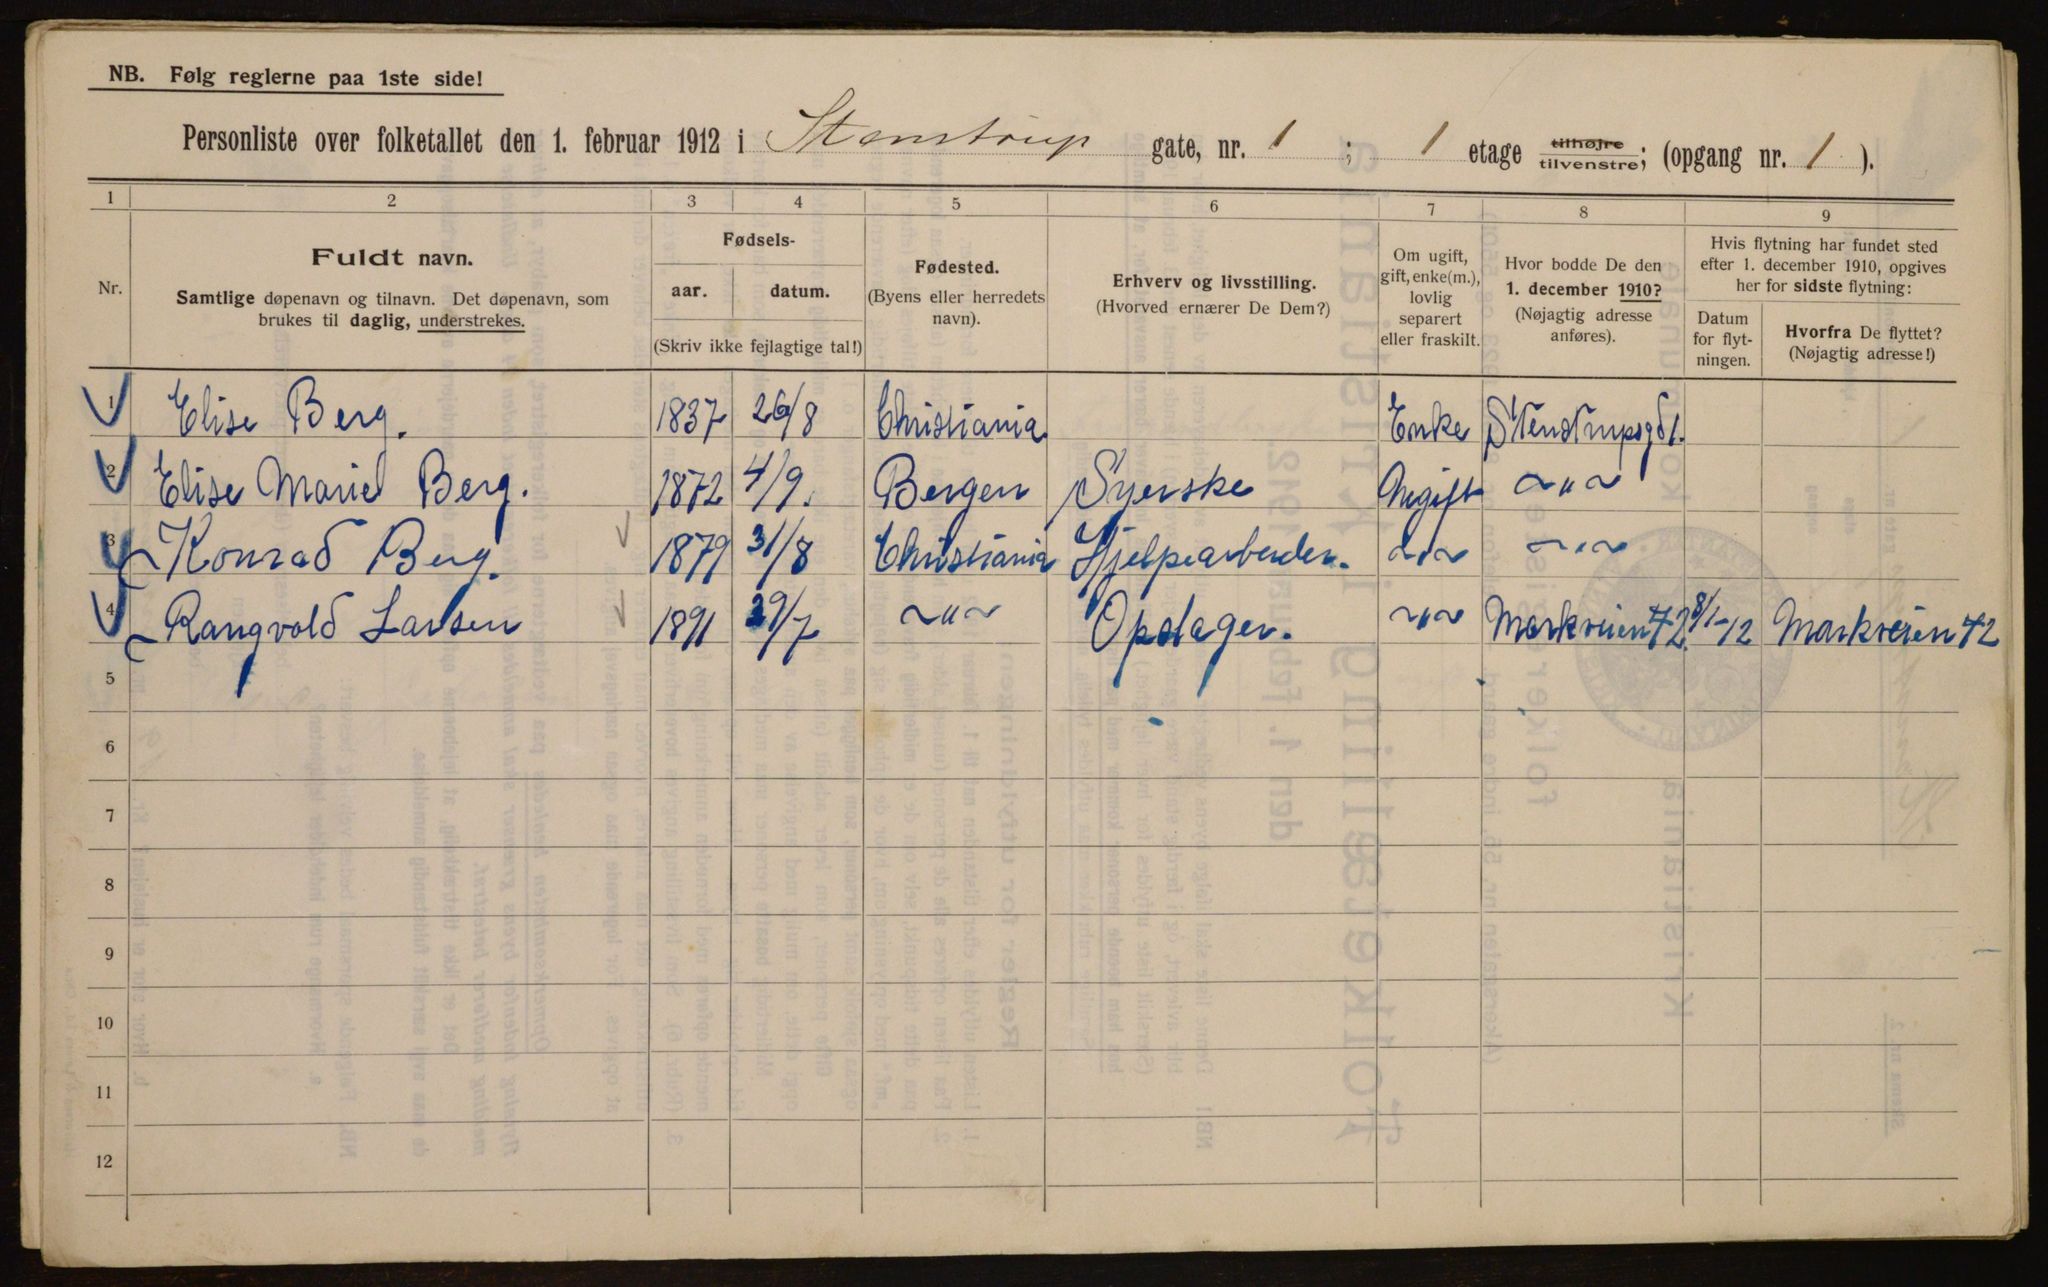 NB. Følg reglerne paa 1ste side!
Personliste over folketallet den 1. februar 1912 i Stenstrup gate, nr. 1 ; 1 etage tilhøjre tilvenstre; (opgang nr. 1 ).
1 2 3 4 5 6 7 8 9
Nr.
Fuldt navn.
Samtlige døpenavn og tilnavn. Det døpenavn, som
brukes til daglig, understrekes.
Fødsels-
aar. datum.
(Skriv ikke fejlagtige tal!)
Fødested.
(Byens eller herredets
navn).
Erhverv og livsstilling.
(Hvorved ernærer De Dem?)
Om ugift,
gift, enke(m.),
lovlig
separert
eller fraskilt.
Hvor bodde De den
1. december 1910?
(Nøjagtig adresse
anføres).
Hvis flytning har fundet sted
efter 1. december 1910, opgives
her for sidste flytning:
Datum
for flyt-
ningen.
Hvorfra De flyttet?
(Nøjagtig adresse!)
1 Elise Berg. 1837 26/8 Christiania. Enke Stenstrupsgd 1.
2 Elise Marie Berg. 1872 4/9. Bergen Syerske Ugift ~"~
3 Konrad Berg. 1879 31/8 Christiania Hjelpearbeider. ~"~ ~"~
4 Rangvold Larsen 1891 29/7 ~"~ Opdager. ~"~ Markveien 42. 8/1-12 Markveien 42
5
6
7
8
9
10
11
12